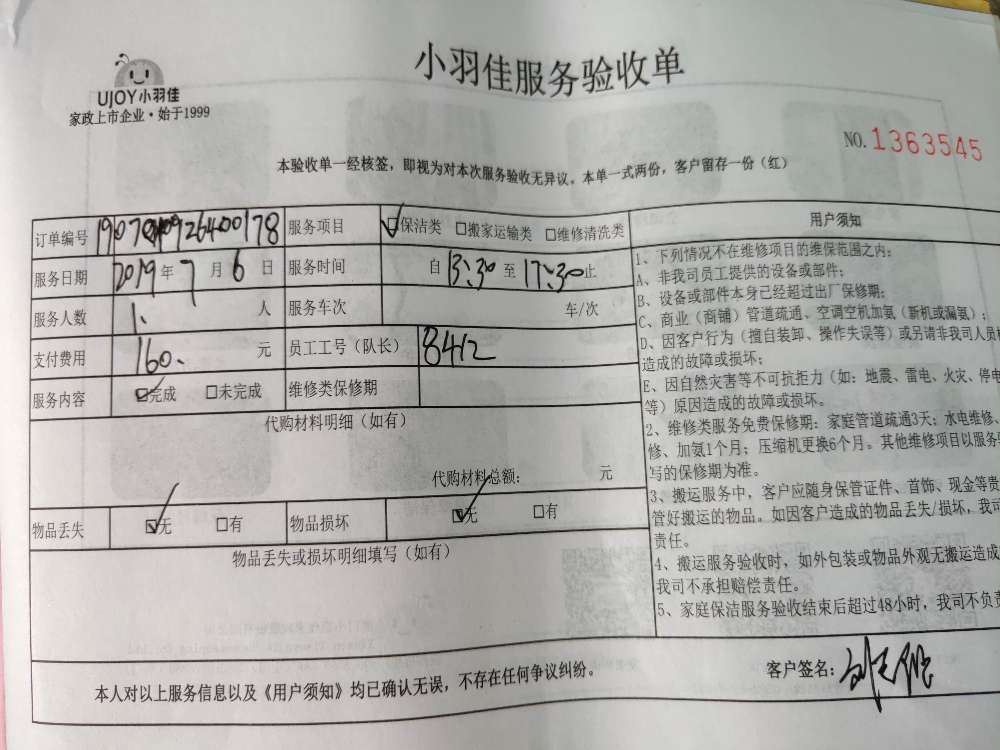 小羽佳服务验收单
UJOY小羽佳
家政上市企业·始于1999
NO.1363545
本验收单一经核签，即视为对本次服务验收无异议。本单一式两份，客户留存一份（红）
订单编号 服务项目 ☑保洁类 □搬家运输类 □维修清洗类
服务日期 2019年7月6日 服务时间 自13:30至17:30止
服务人数 1、人 服务车次 车/次
支付费用 160、元 员工工号（队长） 8412
服务内容 ☑完成 □未完成 维修类保修期
代购材料明细（如有）
代购材料总额： 元
物品丢失 ☑无 □有 物品损坏 ☑无 □有
物品丢失或损坏明细填写（如有）
用户须知
1、下列情况不在维修项目的维保范围之内：
A、非我司员工提供的设备或部件；
B、设备或部件本身已经超过出厂保修期；
C、商业（商铺）管道疏通、空调空机加氨（新机或漏氨）；
D、因客户行为（擅自装卸、操作失误等）或另请非我司人员
造成的故障或损坏；
E、因自然灾害等不可抗拒力（如：地震、雷电、火灾、停电
等）原因造成的故障或损坏。
2、维修类服务免费保修期：家庭管道疏通3天；水电维修、
修、加氨1个月；压缩机更换6个月。其他维修项目以服务
写的保修期为准。
3、搬运服务中，客户应随身保管证件、首饰、现金等贵
管好搬运的物品。如因客户造成的物品丢失/损坏，我司
责任。
4、搬运服务验收时，如外包装或物品外观无搬运造成
我司不承担赔偿责任。
5、家庭保洁服务验收结束后超过48小时，我司不负责
本人对以上服务信息以及《用户须知》均已确认无误，不存在任何争议纠纷。
客户签名：